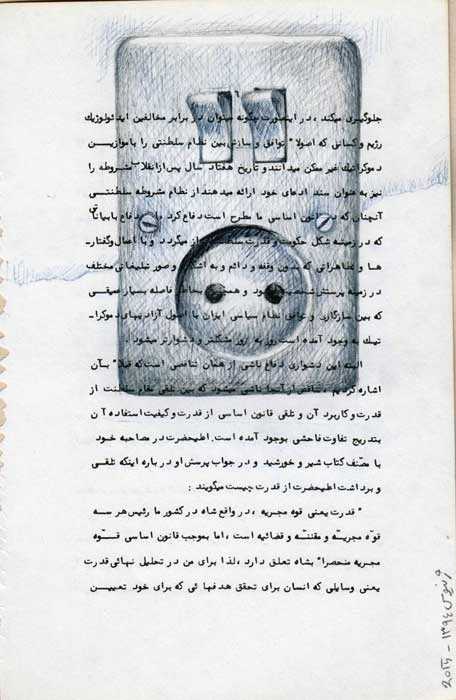 جلوگیری میکند ، در اینصورت چگونه میتوان در برابر مخالفین ایدئولوژیك
رژیم و کسانی که اصولا" توافق و سازش بین نظام سلطنتی را با موازیـن
دموکراتیك غیر ممکن میدانند و تاریخ هفتاد سال پس از انقلاب مشروطه را
نیز به عنوان سند ادعای خود ارائه میدهند از نظام مشروطه سلطنتـی
آنچنان که در قانون اساسی ما مطرح است دفاع کرد دفاع با بیاناتی
که در زمینه شکل حکومت و قدرت سلطنت میگردد و با اعمال وگفتار-
ها و تظاهراتی که بدون وقفه و دائم و به اشکال و صور تبلیغاتی مختلف
در زمینه پرستش میشود و همچنین بخاطر فاصله بسیار عمیقی
که بین سازگاری و توافق نظام سیاسی ایران با اصول آزادیهای دموکرا-
تیك به وجود آمده است روز به روز مشکلتر و دشوارتر میشود .
البته این دشواری دفاع ناشی از همان تناقضی است که قبلا" بـآن
اشاره کردیم . تناقض از آنجا ناشی میشود که بین تلقی نظام سلطنت از
قدرت و کاربرد آن و تلقی قانون اساسی از قدرت و کیفیت استفاده آن
بتدریج تفاوت فاحشی بوجود آمده است . اعلیحضرت در مصاحبه خـود
با مصنّف کتاب شیر و خورشید و در جواب پرسش او در باره اینکه تلقـی
و برداشت اعلیحضرت از قدرت چیست میگویند :
" قدرت یعنی قوه مجریه ، در واقع شاه در کشور ما رئیس هر سـه
قوّه مجریـّه و مقننـّه و قضائیه است ، اما بموجب قانون اساسی قـوّه
مجریه منحصرا" بشاه تعلق دارد ، لذا برای من در تحلیل نهائی قدرت
یعنی وسایلی که انسان برای تحقق هدفهائی که برای خود تعییـن
۱۳۹۴ - 2015